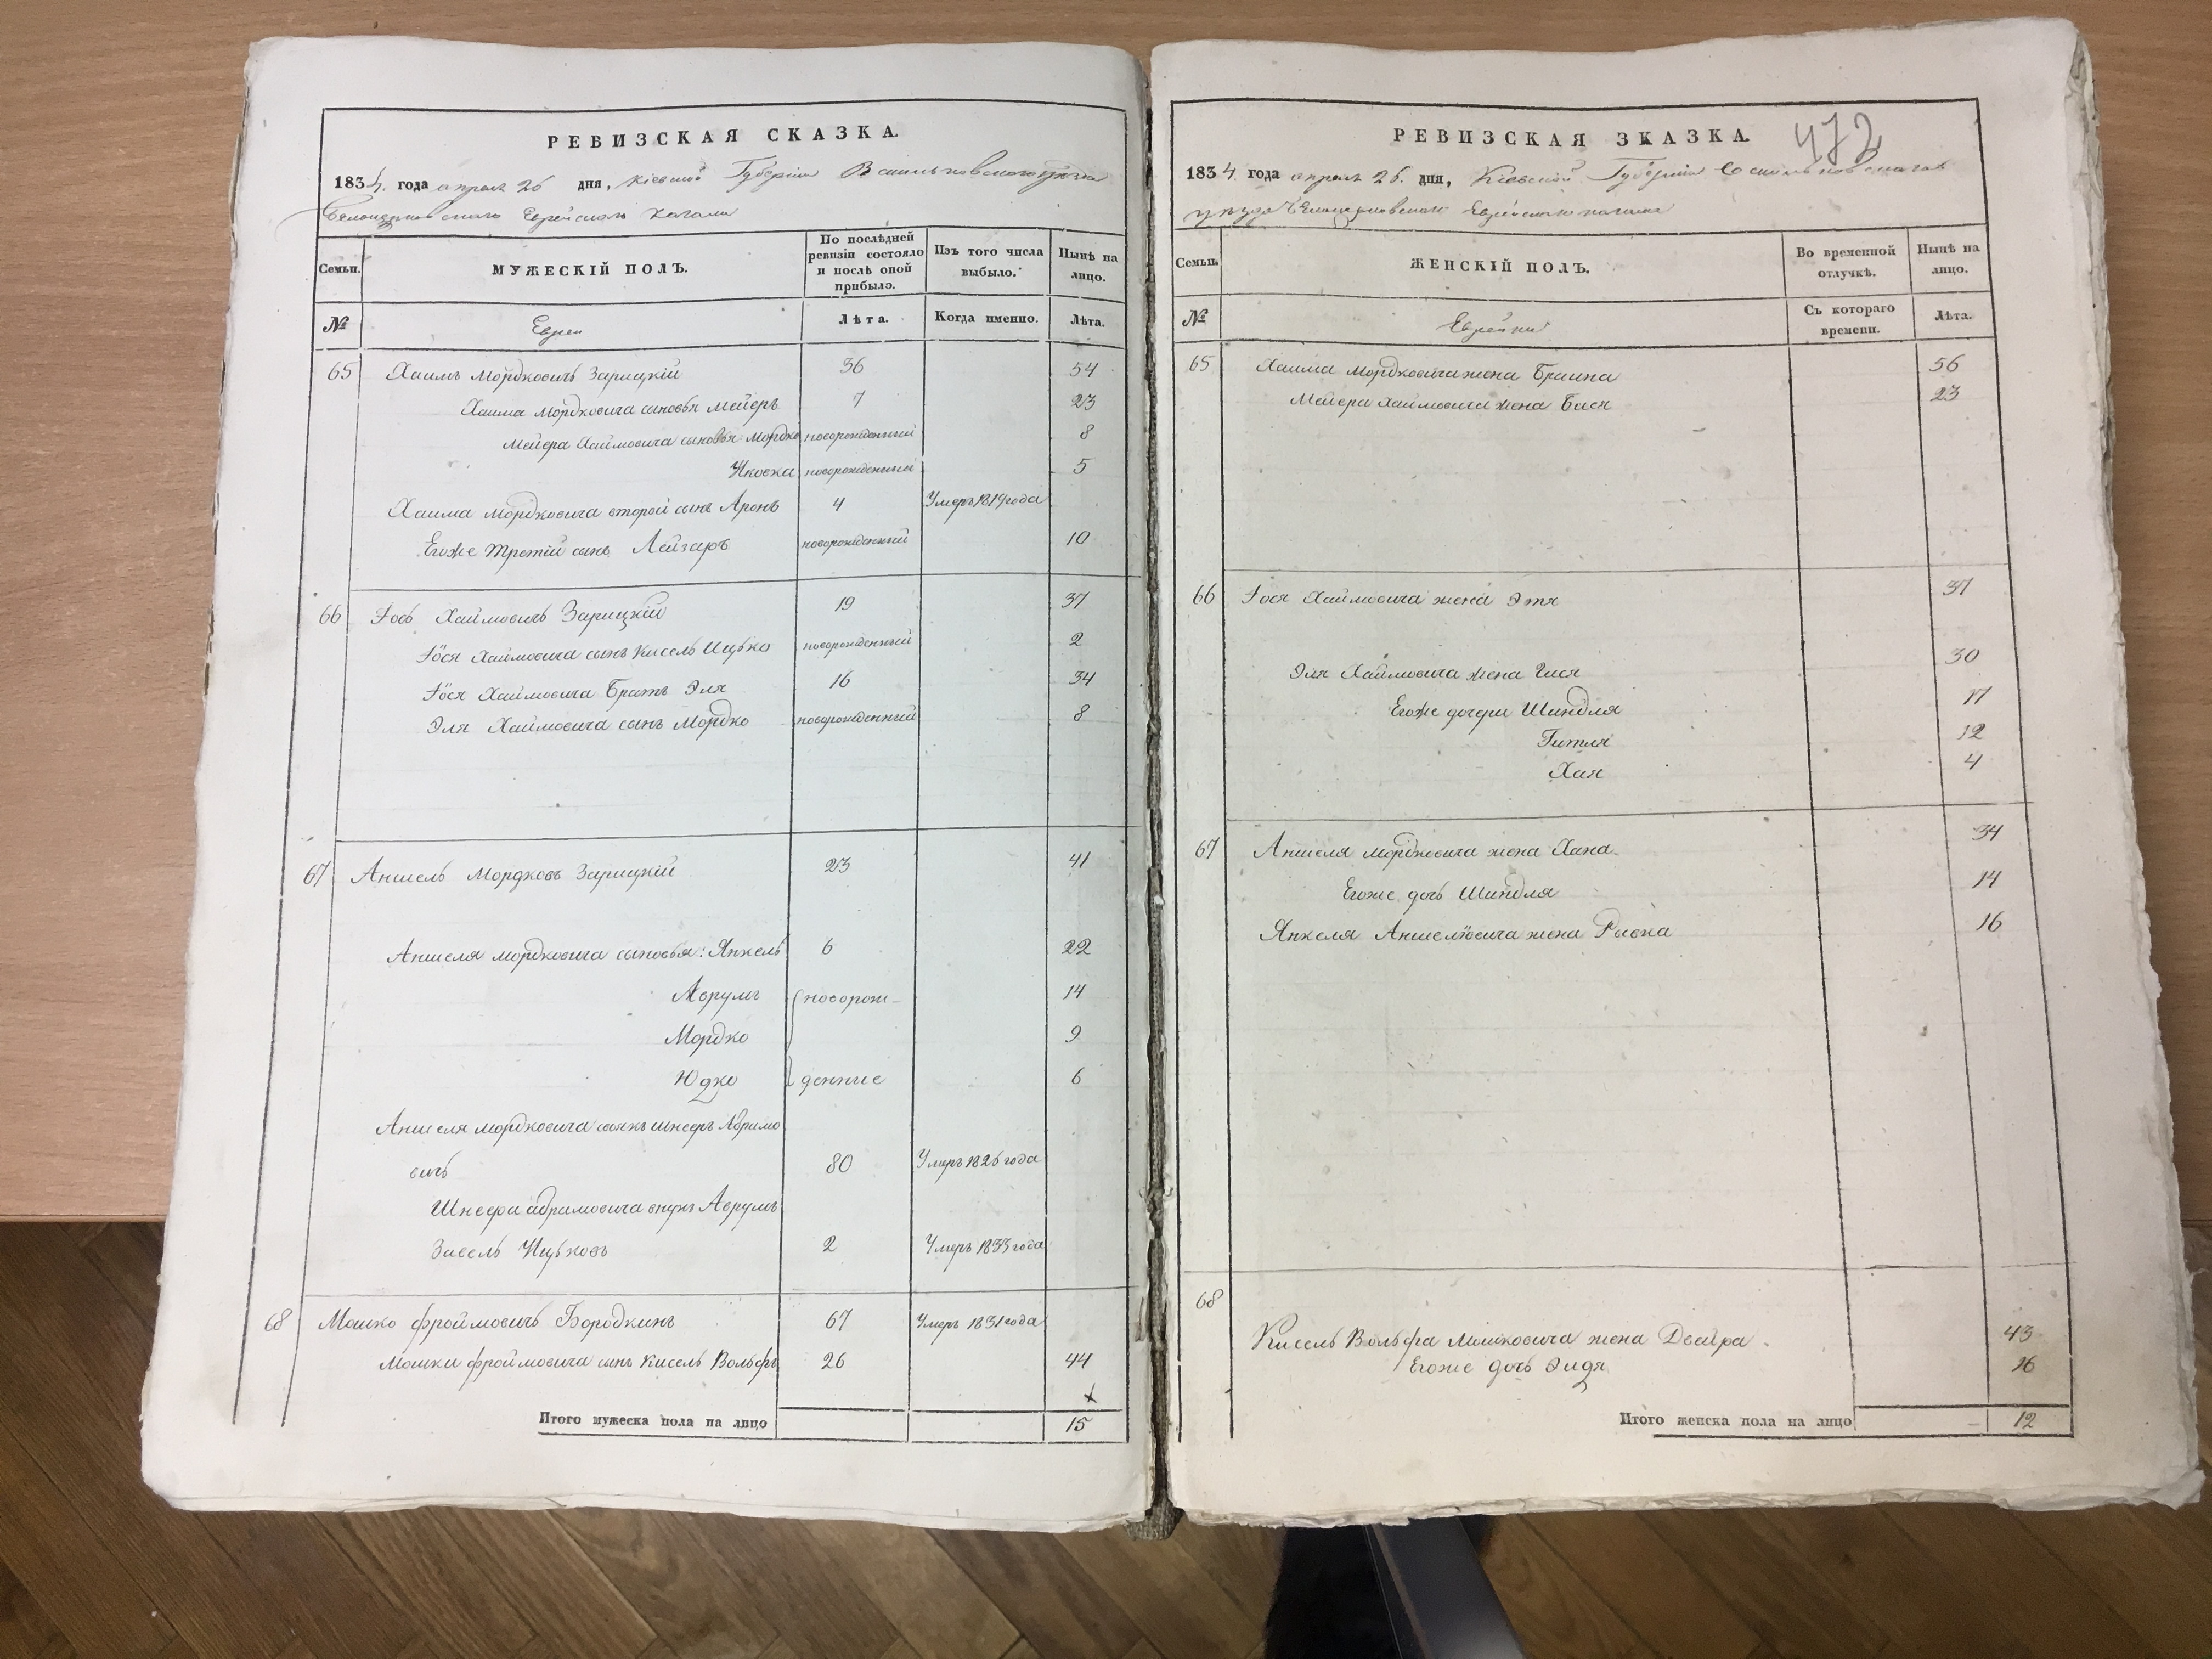 РЕВИЗСКАЯ СКАЗКА.
1834. года апреля 26 дня, Кіевской Губерніи Васильковского уезда
Белоцерковского Еврейского кагала
Семьи.
МУЖЕСКІЙ ПОЛЪ.
По послѣдней ревизіи состояло и послѣ оной прибыло.
Изъ того числа выбыло.
Нынѣ на лицо.
№
Евреи
Лѣта.
Когда именно.
Лѣта.
65 Хаимъ Мордковичъ Зарицкій 36 54
Хаима Мордковича сыновья Мейеръ 7 23
Мейера Хаймовича сыновья Мордко новорожденный 8
Ицковка новорожденный 5
Хаима Мордковича второй сынъ Аронъ 4 Умеръ 1819 года
Егоже Третій сынъ Лейзаръ новорожденный 10
66 Іось Хаймовичъ Зарицкій 19 37
Іося Хаймовича сынъ Кисель Ицько новорожденный 2
Іося Хаймовича Братъ Эля 16 34
Эля Хаймовича сынъ Мордко новорожденный 8
67 Аншель Мордковъ Зарицкій 23 41
Аншеля Мордковича сыновья: Янкель 6 22
Аврумъ новорож- 14
Мордко 9
Юдко денные 6
Аншеля Мордковича Шнееръ Абрамо
вичъ 80 Умеръ 1826 года
Шнеера абрамовича внукъ Аврумъ
Зисель Ицьковъ 2 Умеръ 1833 года
68 Мошко Фроймовичъ Бородкинъ 67 Умеръ 1831 года
Мошки Фроймовича сынъ Кисель Вольфъ 26 44
Итого мужеска пола на лицо 15
РЕВИЗСКАЯ ЗКАЗКА. 472
1834. года апреля 26. дня, Кіевской Губерніи Васильковскаго
уезда Белоцерковского Еврейского кагала
Семьи.
ЖЕНСКІЙ ПОЛЪ.
Во временной отлучкѣ.
Нынѣ на лицо.
№
Еврейки
Съ котораго времени.
Лѣта.
65 Хаима Мордковича жена Браина 56
Мейера Хаймовича жена Бася 23
66 Іося Хаймовича жена Этя 37
Эля Хаймовича жена Гися 30
Егоже дочери Шиндля 17
Гитля 12
Хая 4
67 Аншеля Мордковича жена Хана 34
Егоже дочь Шиндля 14
Янкеля Аншельовича жена Рывка 16
68
Кисель Вольфа Мошковича жена Двейра 43
Егоже дочь Эидя 16
Итого женска пола на лицо 12